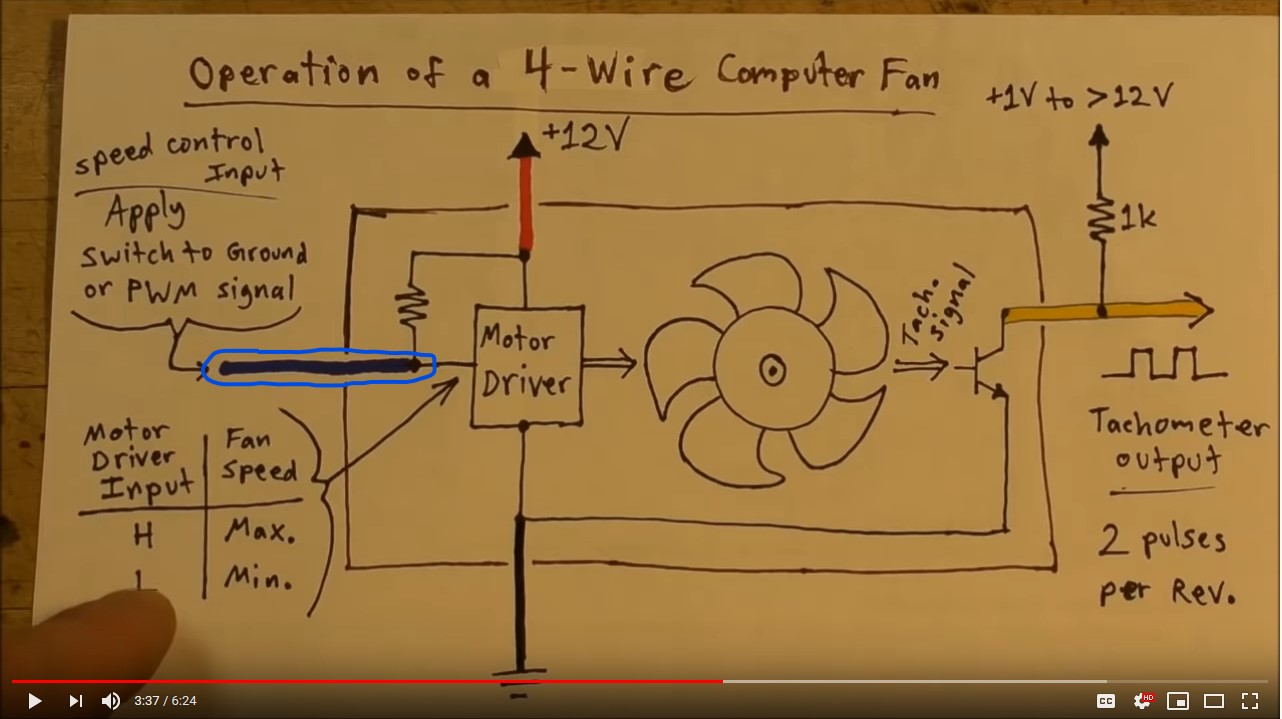 Operation of a 4-Wire Computer Fan
+1V to >12V
+12V
speed control
Input
Apply
switch to Ground
or PWM signal
1k
Motor
Driver
Tach.
Signal
Motor
Driver
Input
Fan
Speed
H
Max.
L
Min.
Tachometer
output
2 pulses
per Rev.
3:37 / 6:24
CC
HD